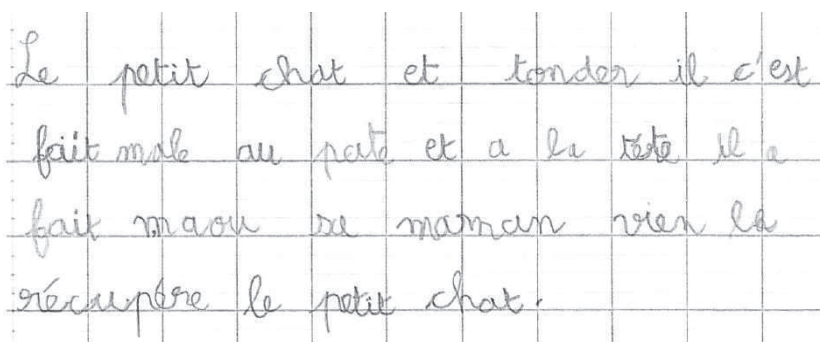 Le petit chat et tonder il c'est
fait male au pate et a la téte il a
fait maou sa maman vien la
récupére le petit chat.